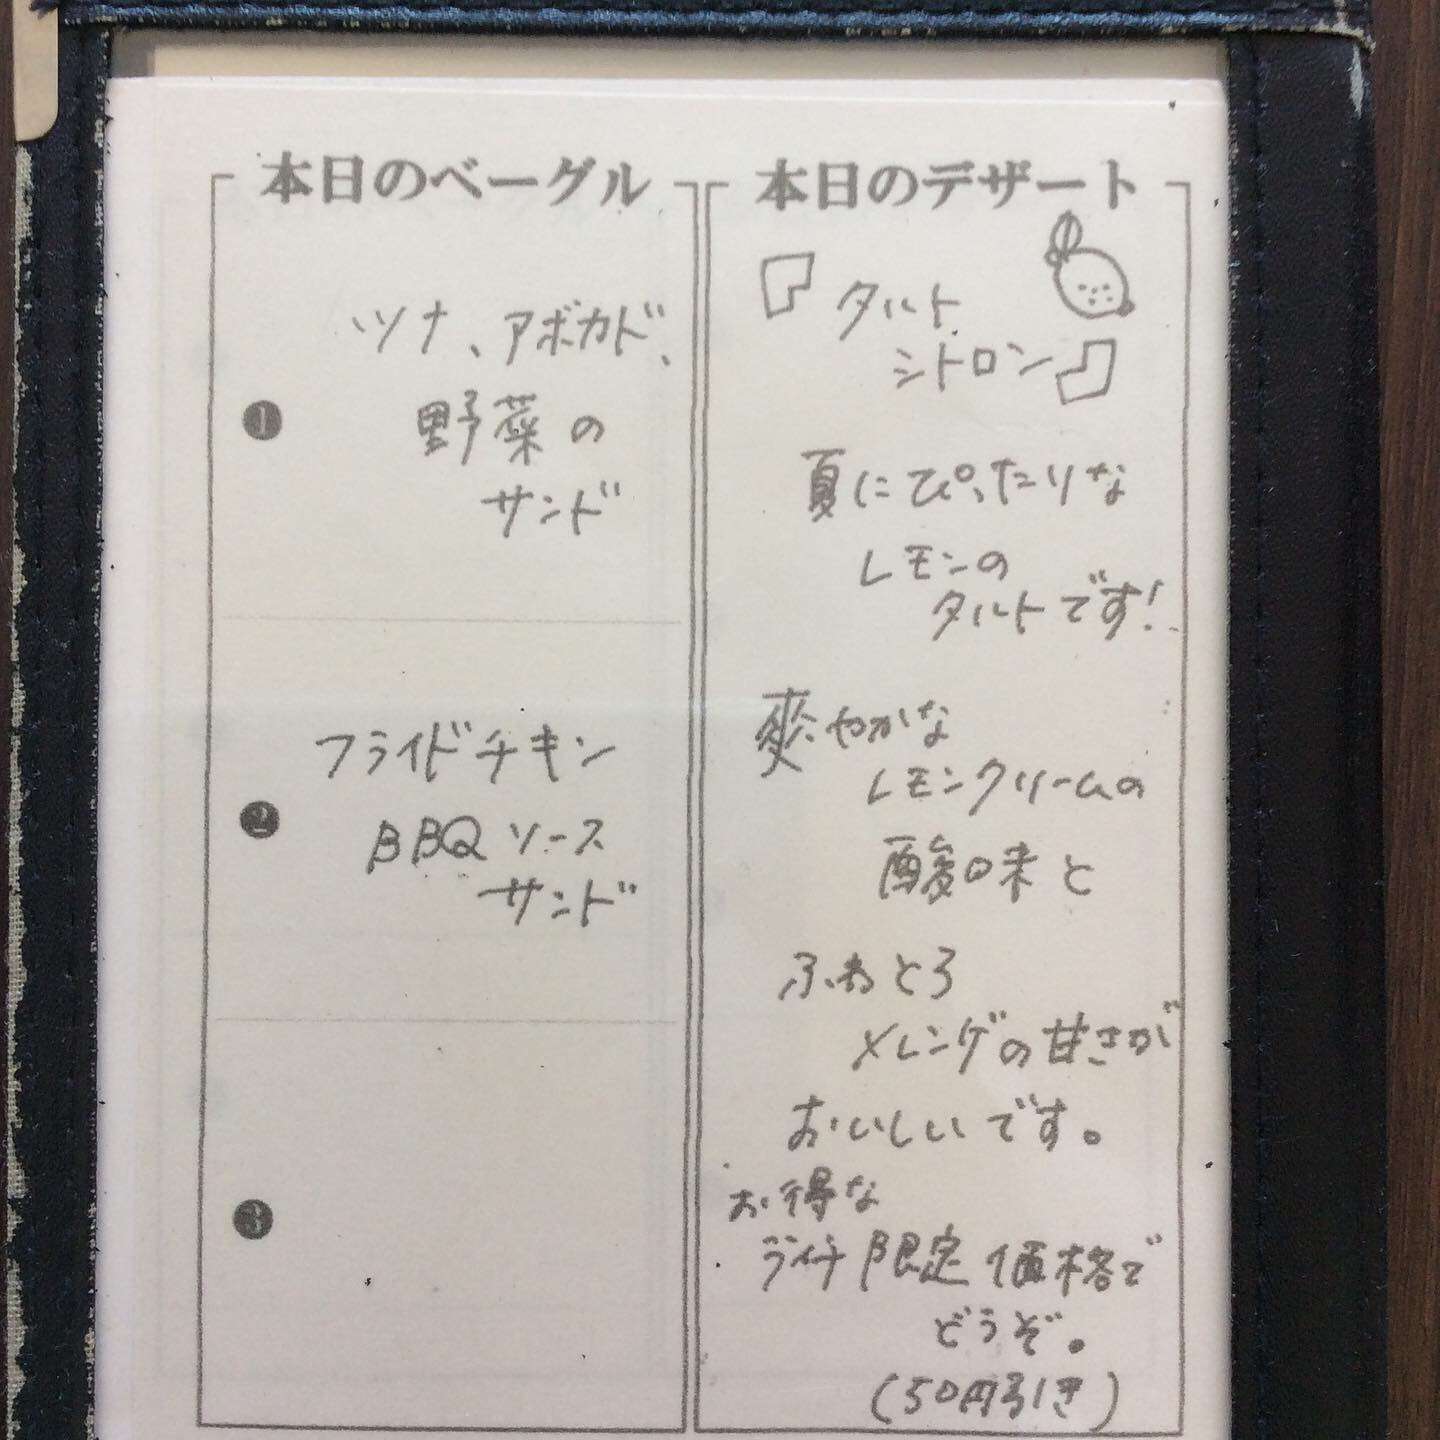 本日のベーグル
❶
ツナ、アボカド、
野菜の
サンド
❷
フライドチキン
BBQソース
サンド
❸
本日のデザート
「タルト
シトロン」
夏にぴったりな
レモンの
タルトです!
爽やかな
レモンクリームの
酸味と
ふわとろ
メレンゲの甘さが
おいしいです。
お得な
ランチ限定価格で
どうぞ。
(50円引き)